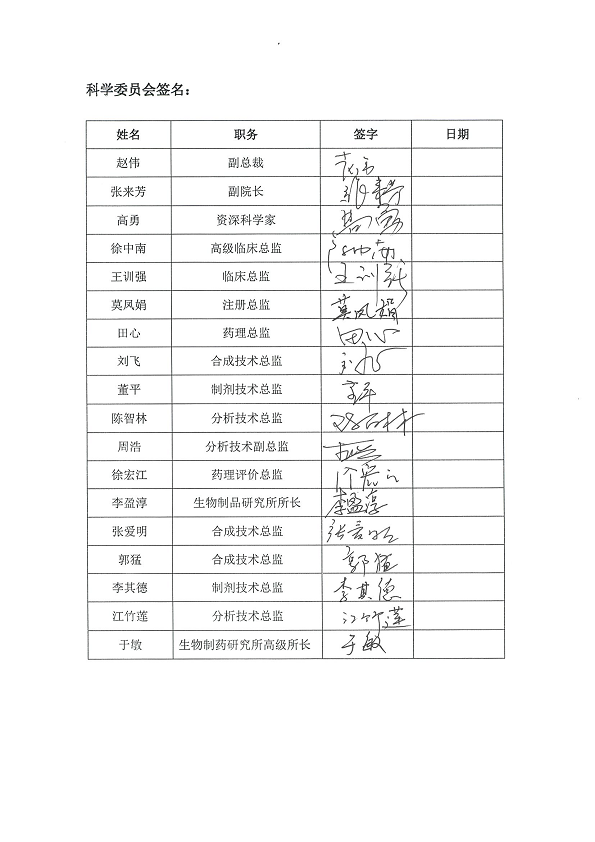 科学委员会签名：
姓名 职务 签字 日期
赵伟 副总裁
张来芳 副院长
高勇 资深科学家 高勇
徐中南 高级临床总监
王训强 临床总监 王训强
莫凤娟 注册总监 莫凤娟
田心 药理总监 田心
刘飞 合成技术总监
董平 制剂技术总监
陈智林 分析技术总监
周浩 分析技术副总监
徐宏江 药理评价总监
李盈淳 生物制品研究所所长 李盈淳
张爱明 合成技术总监
郭猛 合成技术总监 郭猛
李其德 制剂技术总监 李其德
江竹莲 分析技术总监 江竹莲
于墩 生物制药研究所高级所长 于敏